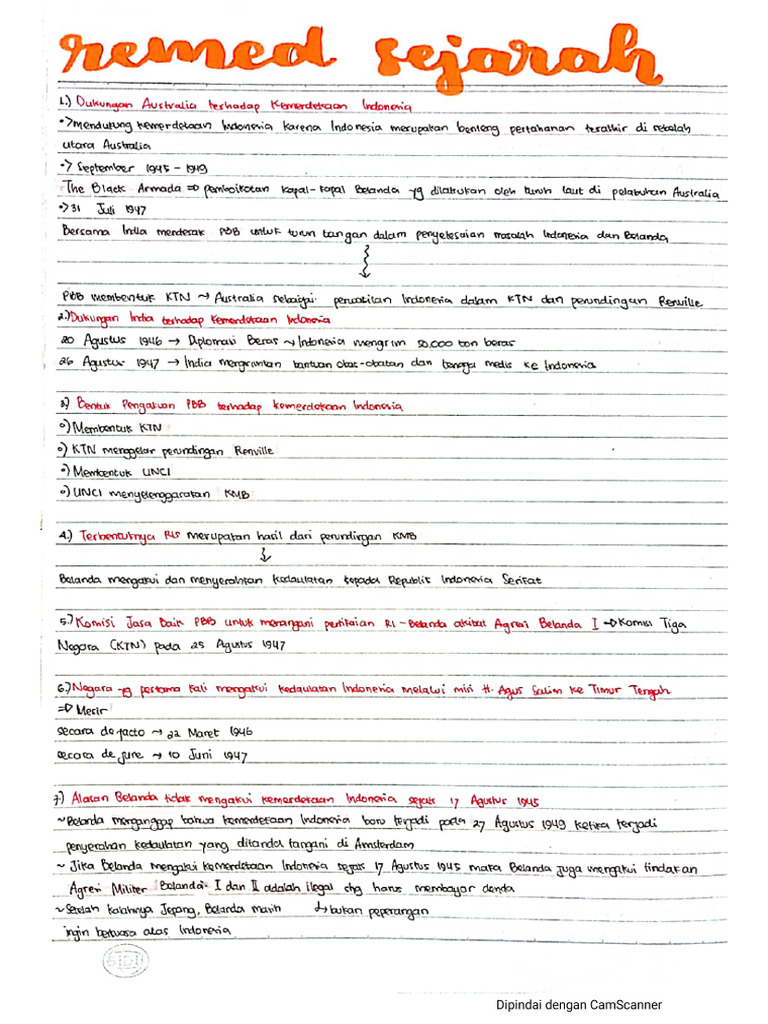 remed sejarah
1.) Dukungan Australia terhadap Kemerdekaan Indonesia
•> mendukung kemerdekaan Indonesia karena Indonesia merupakan benteng pertahanan terakhir di sebelah
utara Australia
•> September 1945 - 1949
The Black Armada => pemboikotan kapal-kapal Belanda yg dilakukan oleh buruh laut di pelabuhan Australia
•> 31 Juli 1947
Bersama India mendesak PBB untuk turun tangan dalam penyelesaian masalah Indonesia dan Belanda
PBB membentuk KTN → Australia sebagai perwakilan Indonesia dalam KTN dan perundingan Renville
2.) Dukungan India terhadap Kemerdekaan Indonesia
20 Agustus 1946 → Diplomasi Beras ~ Indonesia mengirim 50.000 ton beras
26 Agustus 1947 → India mengirimkan bantuan obat-obatan dan tenaga medis ke Indonesia
3.) Bentuk Pengakuan PBB terhadap kemerdekaan Indonesia
o) Membentuk KTN
o) KTN menggelar perundingan Renville
o) Membentuk UNCI
o) UNCI menyelenggarakan KMB
4.) Terbentuknya RIS merupakan hasil dari perundingan KMB
↓
Belanda mengakui dan menyerahkan kedaulatan kepada Republik Indonesia Serikat
5.) Komisi Jasa Baik PBB untuk menangani pertikaian RI - Belanda akibat Agresi Belanda I => Komisi Tiga
Negara (KTN) pada 25 Agustus 1947
6.) Negara yg pertama kali mengakui kedaulatan Indonesia melalui misi H. Agus Salim ke Timur Tengah
=> Mesir
secara de facto → 22 Maret 1946
secara de jure → 10 Juni 1947
7.) Alasan Belanda tidak mengakui kemerdekaan Indonesia sejak 17 Agustus 1945
~ Belanda menganggap bahwa kemerdekaan Indonesia baru terjadi pada 27 Agustus 1949 ketika terjadi
penyerahan kedaulatan yang ditanda tangani di Amsterdam
~ Jika Belanda mengakui kemerdekaan Indonesia sejak 17 Agustus 1945 maka Belanda juga mengakui tindakan
Agresi Militer Belanda I dan II adalah ilegal dng harus membayar denda
~ Setelah kalahnya Jepang, Belanda masih ↳ bukan peperangan
ingin berkuasa atas Indonesia
SIDU
Dipindai dengan CamScanner